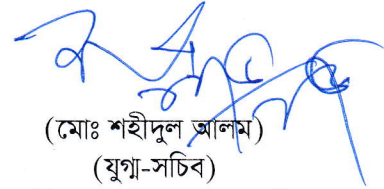 (মোঃ শহীদুল আলম)
(যুগ্ম-সচিব)